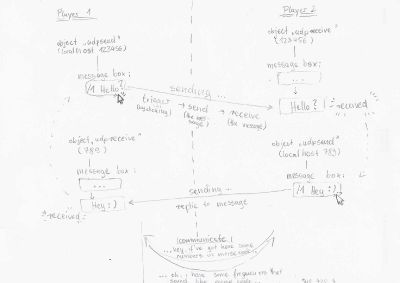 Player 1
object "udpsend"
(localhost 123456)
message box:
/1 Hello?
sending ...
trigger → send → receive
(the message)
Player 2
object "udpreceive"
(123456)
message box:
...
Hello? !
received
object "udpreceive"
(789)
message box:
...
Hey :)
received!
object "udpsend"
(localhost 789)
message box:
/1 Hey :)
sending ...
replie to message
communicate!
...hey, i've got here some
... oh, i have some frequencies that
sound like